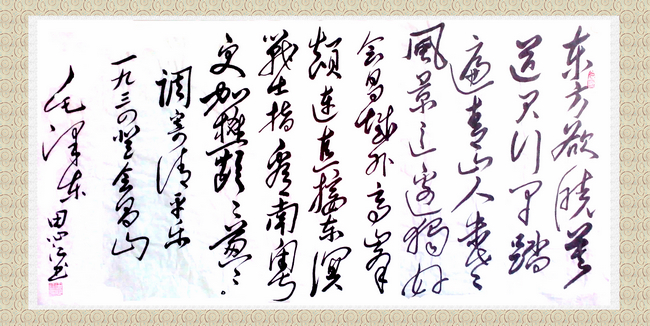 东方欲晓莫
道君行早踏
遍青山人未老
風景这邊獨好
会昌城外高峰
颠连直接东溟
戰士指看南粤
更加郁々葱々
調寄清平乐
一九三四登会昌山
毛泽东